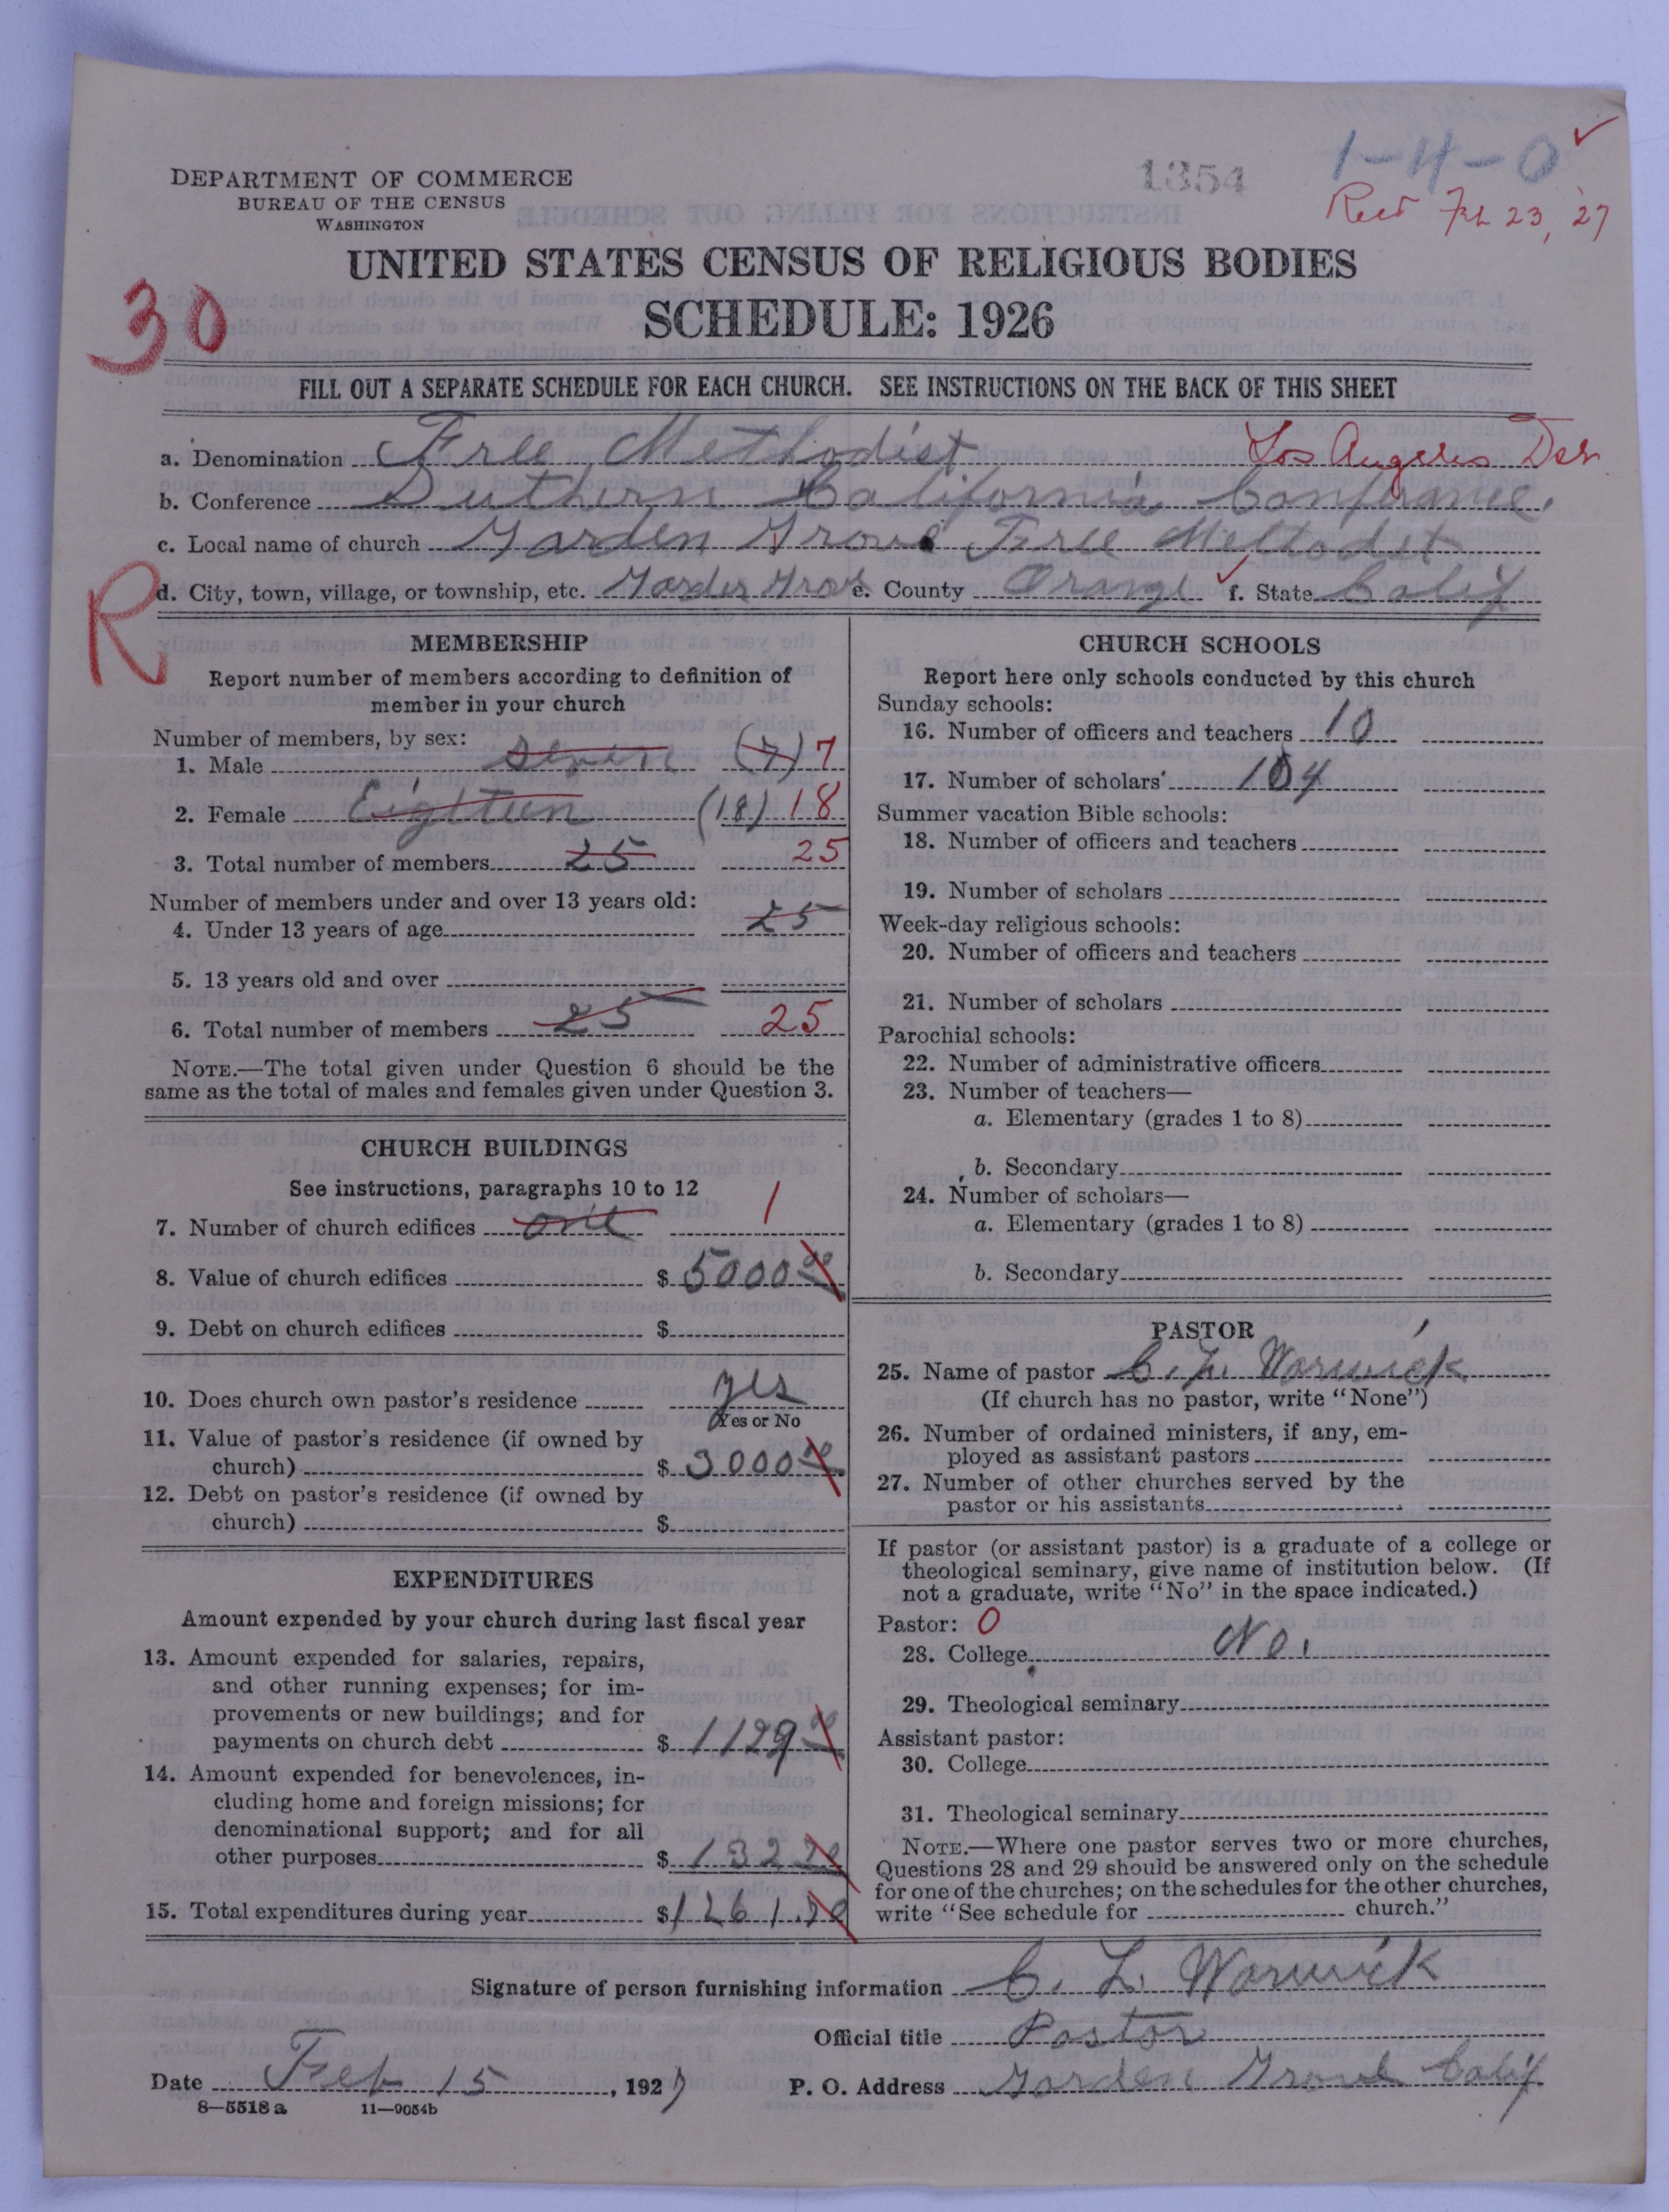 1354
1-4-0
DEPARTMENT OF COMMERCE
BUREAU OF THE CENSUS
WASHINGTON
Recd Feb 23, '27
UNITED STATES CENSUS OF RELIGIOUS BODIES
30
SCHEDULE: 1926
FILL OUT A SEPARATE SCHEDULE FOR EACH CHURCH. SEE INSTRUCTIONS ON THE BACK OF THIS SHEET
a. Denomination Free Methodist Los Angeles
b. Conference Suthern California Conferance.
c. Local name of church Garden Grove Free Methodist
d. City, town, village, or township, etc. Garden Grove e. County Orange f. State Calif
R
MEMBERSHIP
Report number of members according to definition of
member in your church
Number of members, by sex:
1. Male seven (7) 7
2. Female Eighteen (18) 18
3. Total number of members 25 25
Number of members under and over 13 years old:
4. Under 13 years of age 25
5. 13 years old and over
6. Total number of members 25 25
NOTE.—The total given under Question 6 should be the
same as the total of males and females given under Question 3.
CHURCH BUILDINGS
See instructions, paragraphs 10 to 12
7. Number of church edifices one 1
8. Value of church edifices $ 5000 00
9. Debt on church edifices $
10. Does church own pastor's residence yes
Yes or No
11. Value of pastor's residence (if owned by
church) $ 3000 00
12. Debt on pastor's residence (if owned by
church) $
EXPENDITURES
Amount expended by your church during last fiscal year
13. Amount expended for salaries, repairs,
and other running expenses; for im-
provements or new buildings; and for
payments on church debt $ 1129 00
14. Amount expended for benevolences, in-
cluding home and foreign missions; for
denominational support; and for all
other purposes $ 132 20
15. Total expenditures during year $ 1261.20
CHURCH SCHOOLS
Report here only schools conducted by this church
Sunday schools:
16. Number of officers and teachers 10
17. Number of scholars 104
Summer vacation Bible schools:
18. Number of officers and teachers
19. Number of scholars
Week-day religious schools:
20. Number of officers and teachers
21. Number of scholars
Parochial schools:
22. Number of administrative officers
23. Number of teachers—
a. Elementary (grades 1 to 8)
b. Secondary
24. Number of scholars—
a. Elementary (grades 1 to 8)
b. Secondary
PASTOR
25. Name of pastor C. L. Warwick
(If church has no pastor, write "None")
26. Number of ordained ministers, if any, em-
ployed as assistant pastors
27. Number of other churches served by the
pastor or his assistants
If pastor (or assistant pastor) is a graduate of a college or
theological seminary, give name of institution below. (If
not a graduate, write "No" in the space indicated.)
Pastor: 0
28. College No.
29. Theological seminary
Assistant pastor:
30. College
31. Theological seminary
NOTE.—Where one pastor serves two or more churches,
Questions 28 and 29 should be answered only on the schedule
for one of the churches; on the schedules for the other churches,
write "See schedule for church."
Signature of person furnishing information C. L. Warwick
Official title Pastor
Date Feb 15, 1927 P. O. Address Garden Grove Calif
8—5518 a 11—9054b